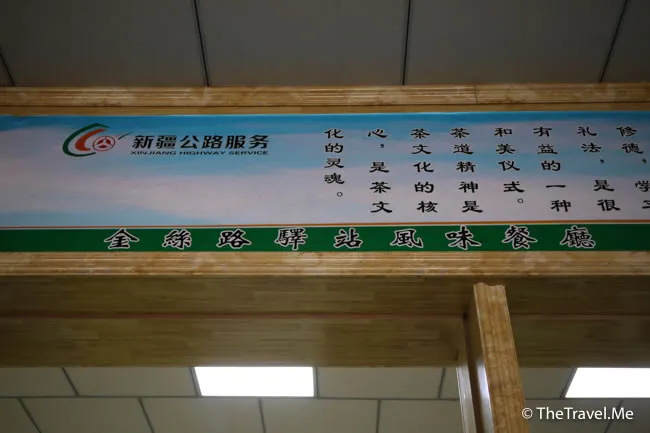 新疆公路服务
XINJIANG HIGHWAY SERVICE
修德，学
礼法，是很
有益的一种
和美仪式。
茶道精神是
茶文化的核
心，是茶文
化的灵魂。
金絲路驛站風味餐廳
© TheTravel.Me